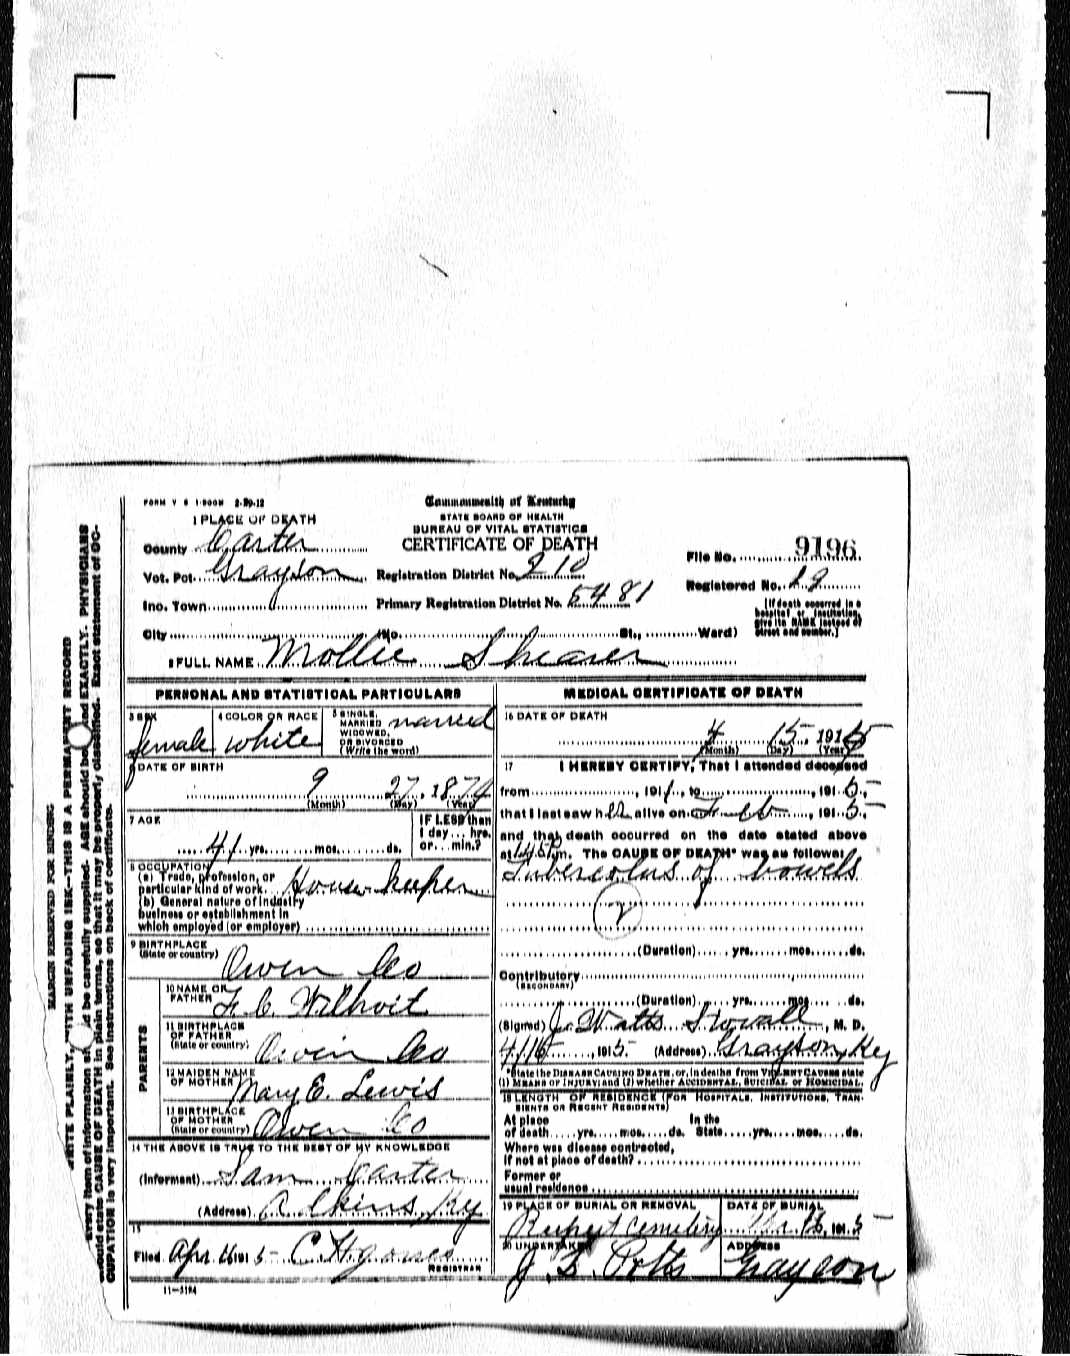 FORM V S 1-500M 2-29-12
Commonwealth of Kentucky
STATE BOARD OF HEALTH
BUREAU OF VITAL STATISTICS
CERTIFICATE OF DEATH
1 PLACE OF DEATH
County Carter
Vot. Pct. Grayson
Inc. Town
City No. St., Ward)
Registration District No. 210
Primary Registration District No. 5481
File No. 9196
Registered No. 19
[If death occurred in a hospital or institution, give its NAME instead of street and number.]
2 FULL NAME Mollie Shearer
PERSONAL AND STATISTICAL PARTICULARS
3 SEX female
4 COLOR OR RACE white
5 SINGLE, MARRIED WIDOWED, OR DIVORCED (Write the word) married
6 DATE OF BIRTH
9 27, 1874
(Month) (Day) (Year)
7 AGE
41 yrs. mos. ds.
IF LESS than 1 day ... hrs. or ... min.?
8 OCCUPATION
(a) Trade, profession, or particular kind of work. House keeper
(b) General nature of industry business or establishment in which employed (or employer)
9 BIRTHPLACE (State or country) Owen Co
PARENTS
10 NAME OF FATHER F. C. Wilhoit
11 BIRTHPLACE OF FATHER (State or country) Owen Co
12 MAIDEN NAME OF MOTHER Mary E. Lewis
13 BIRTHPLACE OF MOTHER (State or country) Owen Co
14 THE ABOVE IS TRUE TO THE BEST OF MY KNOWLEDGE
(Informant) Sam Carter
(Address) Ky
15
Filed Apr 1915
REGISTRAR
11—3184
MEDICAL CERTIFICATE OF DEATH
16 DATE OF DEATH
4 15, 1915
(Month) (Day) (Year)
17 I HEREBY CERTIFY, That I attended deceased
from , 191 , to , 1915,
that I last saw h er alive on Feb , 1915,
and that death occurred on the date stated above
at m. The CAUSE OF DEATH* was as follows:
Tuberculus of bowels
(Duration) yrs. mos. ds.
Contributory
(SECONDARY)
(Duration) yrs. mos. ds.
(Signed) J. Watts Stovall, M. D.
4/16, 1915. (Address) Grayson, Ky
*State the DISEASE CAUSING DEATH, or, in deaths from VIOLENT CAUSES state
(1) MEANS OF INJURY; and (2) whether ACCIDENTAL, SUICIDAL or HOMICIDAL.
18 LENGTH OF RESIDENCE (FOR HOSPITALS, INSTITUTIONS, TRANSIENTS OR RECENT RESIDENTS)
At place In the
of death yrs. mos. ds. State yrs. mos. ds.
Where was disease contracted,
if not at place of death?
Former or
usual residence
19 PLACE OF BURIAL OR REMOVAL Rupert Cemetery
DATE OF BURIAL 1915
20 UNDERTAKER J. B. Potts
ADDRESS Grayson
MARGIN RESERVED FOR BINDING
WRITE PLAINLY, WITH UNFADING INK—THIS IS A PERMANENT RECORD
Every item of information should be carefully supplied. AGE should be stated EXACTLY. PHYSICIANS
should state CAUSE OF DEATH in plain terms, so that it may be properly classified. Exact statement of OC-
CUPATION is very important. See instructions on back of certificate.